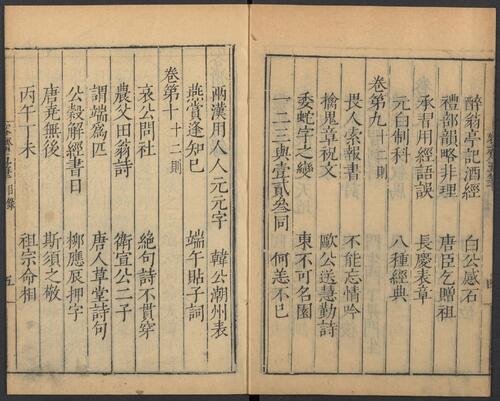 醉翁亭記酒經 白公感石
禮部韻略非理 唐臣乞贈祖
承習用經語誤 長慶表章
元白制科 八種經典
卷第九 十二則
畏人索報書 不能忘情吟
擒鬼章祝文 歐公送慧勤詩
委蛇字之變 東不可名園
一二三與壹貳叄同 何恙不已
兩漢用人人元元字 韓公潮州表
燕賞逢知已 端午貼子詞
卷第十 十二則
哀公問社 絕句詩不貫穿
農父田翁詩 衛宣公二子
謂端爲匹 唐人草堂詩句
公穀解經書日 柳應辰押字
唐堯無後 斯須之敬
丙午丁未 祖宗命相
目錄 五